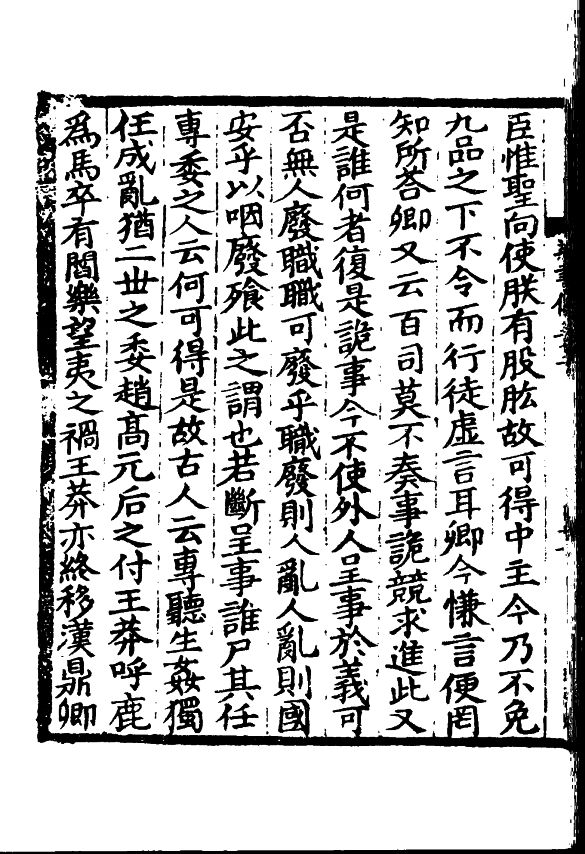 臣惟聖向使朕有股肱故可得中主今乃不免
九品之下不令而行徒虚言耳卿今慊言便罔
知所荅卿又云百司莫不奏事詭競求進此又
是誰何者復是詭事今不使外人呈事於義可
否無人廢職職可廢乎職廢則人亂人亂則國
安乎以咽廢飱此之謂也若斷呈事誰尸其任
專委之人云何可得是故古人云專聽生姦獨
任成亂猶二世之委趙髙元后之付王莽呼鹿
爲馬卒有閻樂望夷之禍王莽亦終移漢鼎卿